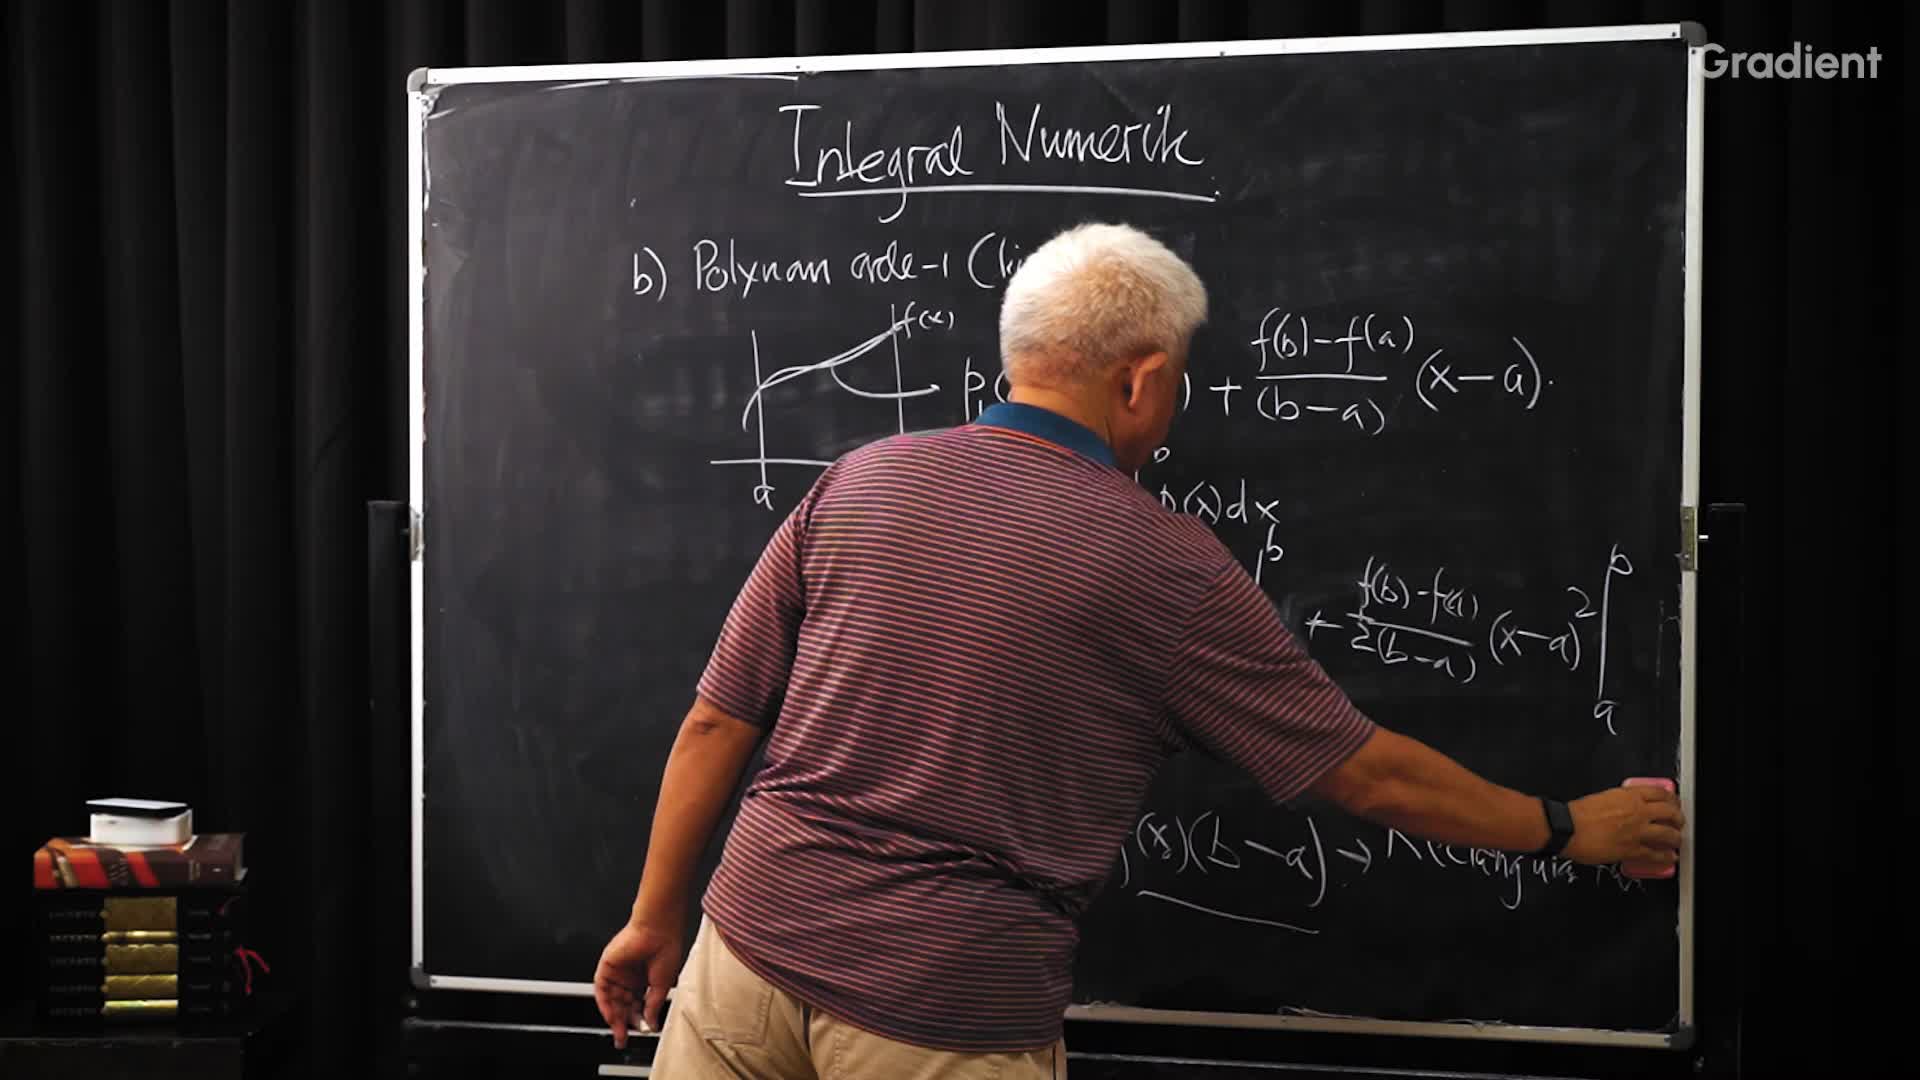 Gradient
Integral Numerik
b) Polynom orde-1 (li
f(x)
p₁( ) + f(b)-f(a) / (b-a) (x-a).
a
b
p(x)dx
b
+ f(b)-f(a) / 2(b-a) (x-a)² b
a
f(x₀)(b-a) → Rectangular